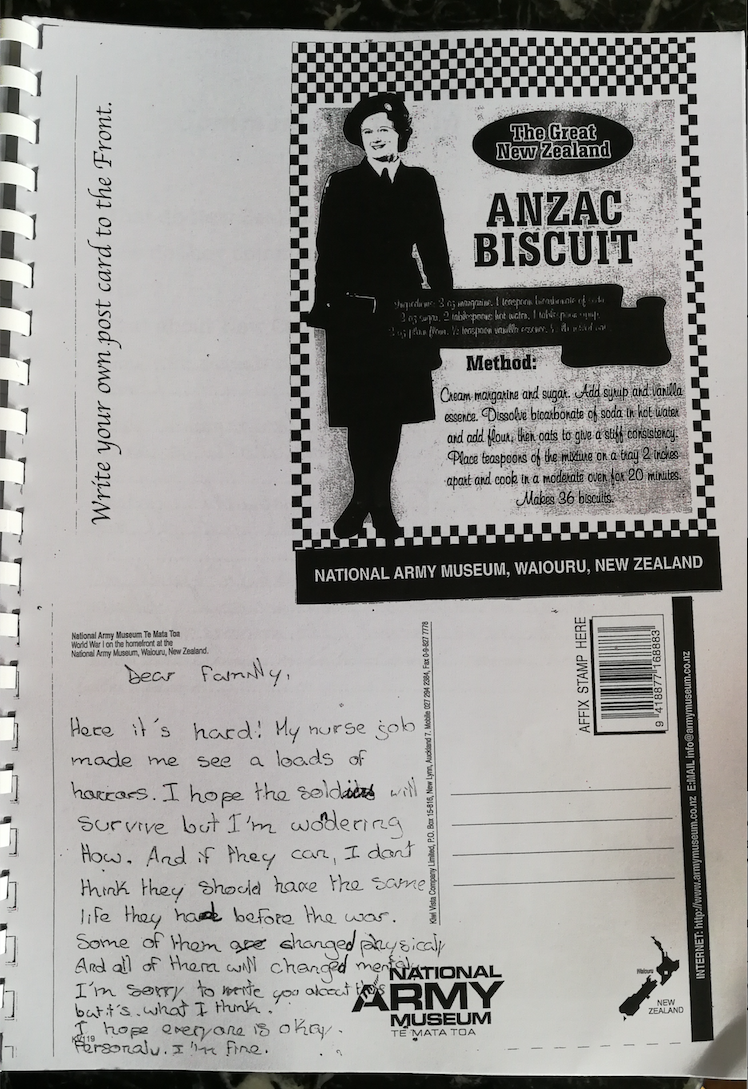 Write your own post card to the Front.
The Great
New Zealand
ANZAC
BISCUIT
Ingredients: 3 oz margarine, 1 teaspoon bicarbonate of soda
3 oz sugar, 2 tablespoons hot water, 1 tablespoon syrup,
3 oz plain flour, ½ teaspoon vanilla essence,
Method:
Cream margarine and sugar. Add syrup and vanilla
essence. Dissolve bicarbonate of soda in hot water
and add flour, then oats to give a stiff consistency.
Place teaspoons of the mixture on a tray 2 inches
apart and cook in a moderate oven for 20 minutes.
Makes 36 biscuits.
NATIONAL ARMY MUSEUM, WAIOURU, NEW ZEALAND
National Army Museum Te Mata Toa
World War I on the homefront at the
National Army Museum, Waiouru, New Zealand.
Dear Family,
Here it's hard! My nurse job
made me see a loads of
horrors. I hope the soldiers will
survive but I'm wondering
How. And if they can, I dont
think they should have the same
life they had before the war.
Some of them are changed physicaly
And all of them will changed mentaly
I'm sorry to write you about this
but it's what I think.
I hope everyone is okay.
Personaly, I'm fine.
Kiwi Vista Company Limited, P.O. Box 15-816, New Lynn, Auckland 7. Mobile 027 294 2384, Fax 0-9-827 7778
AFFIX STAMP HERE
9 418877 168883
INTERNET: http://www.armymuseum.co.nz E:MAIL info@armymuseum.co.nz
NATIONAL
ARMY
MUSEUM
TE MATA TOA
Waiouru
NEW
ZEALAND